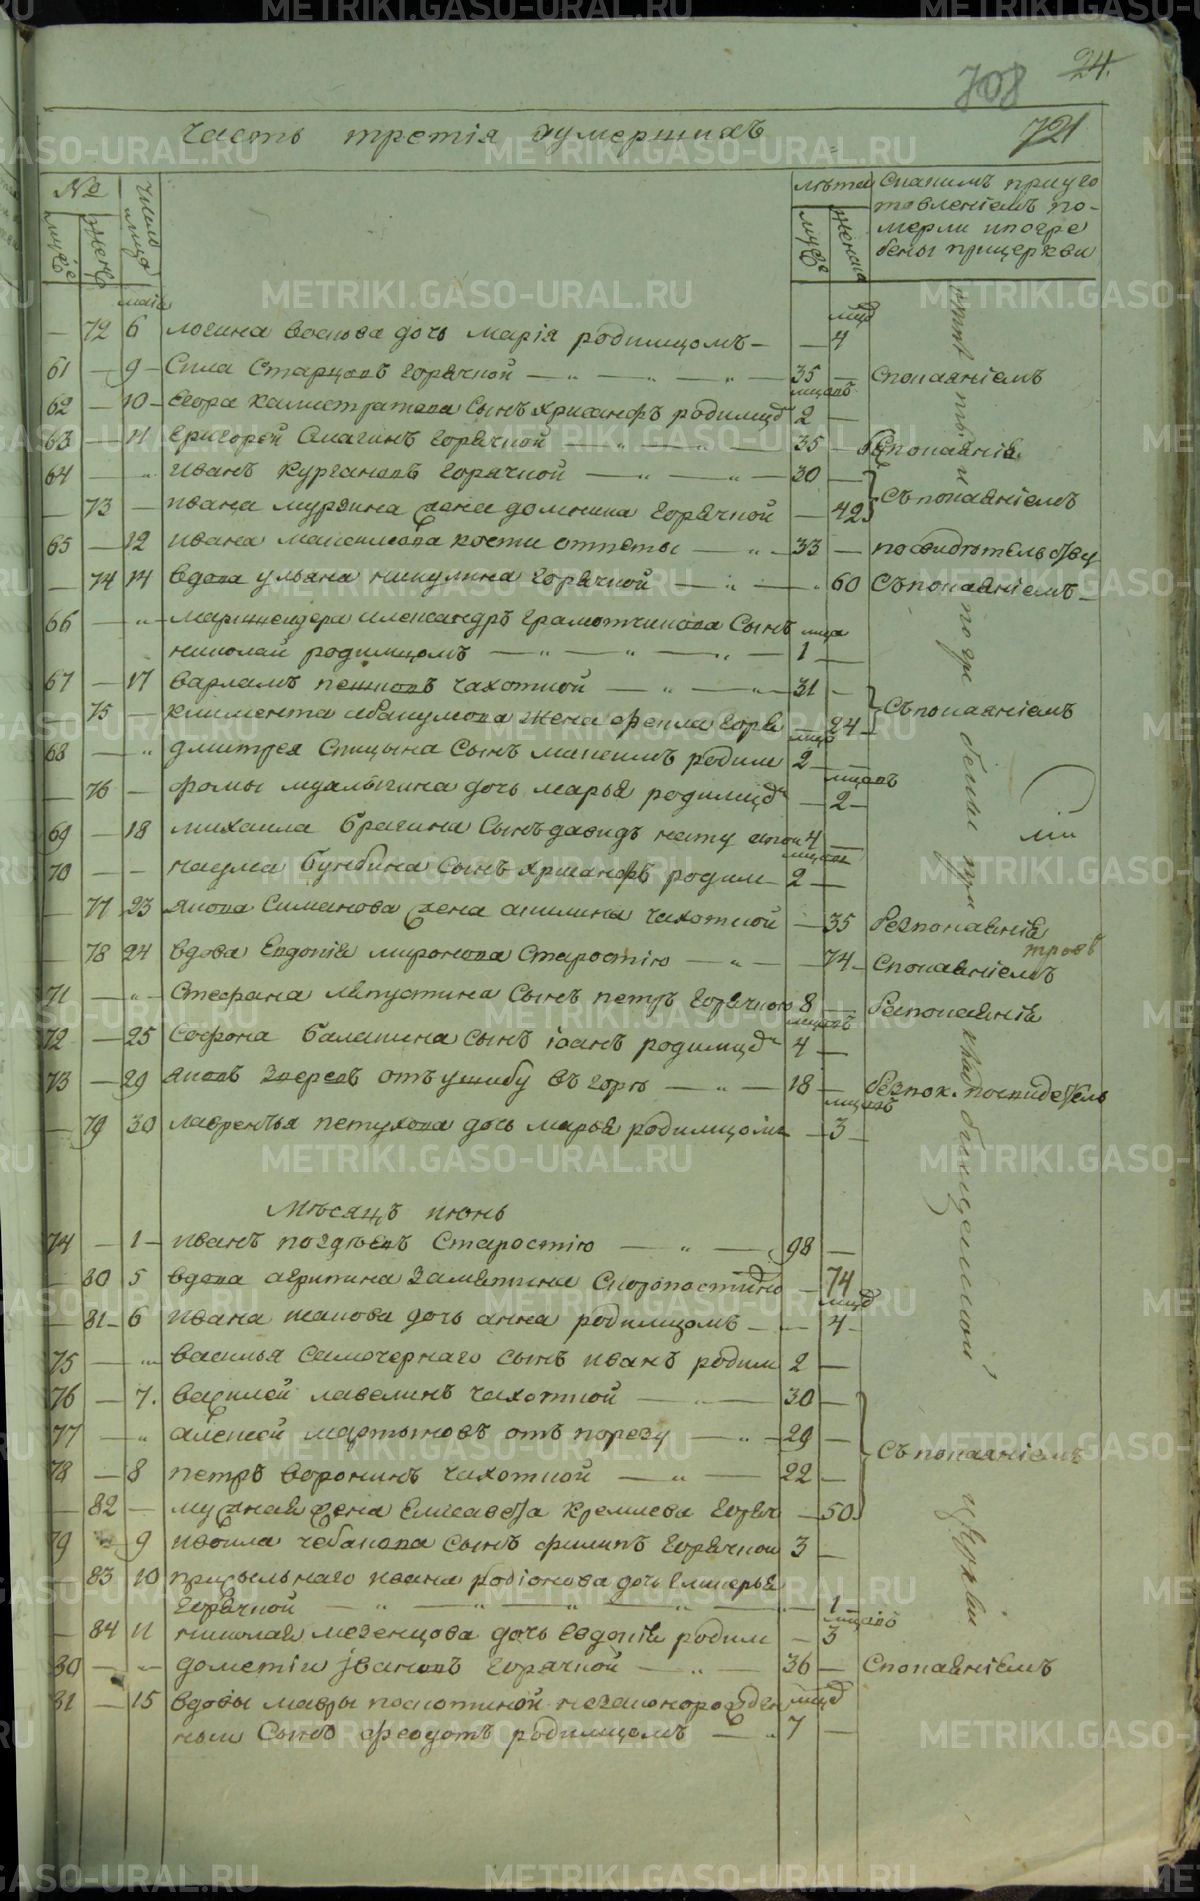 708
24.
Часть третія оумершихъ
721
№
муже
женс
число
лица
лѣта
муже
женска
Скакимъ пригуго
товленіемъ по-
мерли ипогре
бены прицеркви
маія
72 6 логина воснова дочь марія родимцомъ — — мцъ 4
61 — 9 Сила Старцовъ горячкой — 35 — Спокаяніемъ
62 — 10 Егора калистратова Сынъ хрисанфъ родимцъ мцовъ 2 —
63 — 11 григорей Смагинъ горячкой — 35 — безпокаянія
64 — „ иванъ кургановъ горячкой — 30 —
— 73 — ивана мурзина жена домника горячкой — 42 Съ покаяніемъ
65 — 12 ивана максимова кости отпеты — „ — 33 — посвидѣтельству
— 74 14 вдова ульяна никулина горячкой — „ 60 Съпокаяніемъ
66 — „ маркшейдера александръ грамотчикова Сынъ мца
николай родимцомъ — 1 —
67 — 17 варламъ пешковъ чахоткой — 31 —
— 75 — климента абакумова жена фекла горя — 24 — Съпокаяніемъ
68 — „ дмитрея Спицына Сынъ максимъ родим мцъ 2 —
— 76 — фомы мдалыгина дочь марья родимцъ — мцовъ 2 —
69 — 18 михаила брагина Сынъ давидъ 4 —
70 — — наума бундина Сынъ хрисанфъ родим мцовъ 2 —
— 77 23 якова Симанова жена акилина чахоткой — 35 безпокаянія
— 78 24 вдова Евдокія миронова Старостію — „ — 74 — Спокаяніемъ
71 — „ — Стефана лапустина Сынъ петръ горячкою 8 — безпокаянія
72 — 25 Софона балакина сынъ іоанъ родимцъ мцовъ 4 —
73 — 29 яковъ Зверевъ отъ ушибу въ горѣ — „ — 18 — безпок. посвидетель
— 79 30 лаврентья петухова дочь марья родимцомъ — мцовъ 3 —
Мѣсяцъ июнь
74 — 1 — иванъ поздѣевъ Старостію — „ — 98 —
— 80 5 вдова агрипина Замятина — 74
— 81 — 6 ивана шапова дочь анна родимцомъ — мцъ 4 —
75 — „ василья Самочернаго сынъ иванъ родим 2 —
76 — 7. василей лавелинъ чахоткой — 30 —
77 — „ алексей мартыновъ отъ порезу — „ — 29 —
78 — 8 петръ воронинъ чахоткой — „ — 22 — Съ покаяніемъ
— 82 — мужняя жена Елисавета Кремлева горяч — 50
79 — 9 ивоила чебакова сынъ филипъ горячкой 3 —
— 83 10 присыльнаго ивана родіонова дочь Гликерья
горячкой — 1
— 84 11 николая мезенцова дочь евдокія родим — мцовъ 3
80 — „ дометіи Ивановъ горячкой — „ — 36 — Спокаяніемъ
81 — 15 вдовы мавры поскотиной незаконорожден мцъ
ным Сынъ феодотъ родимцомъ — „ 7 —